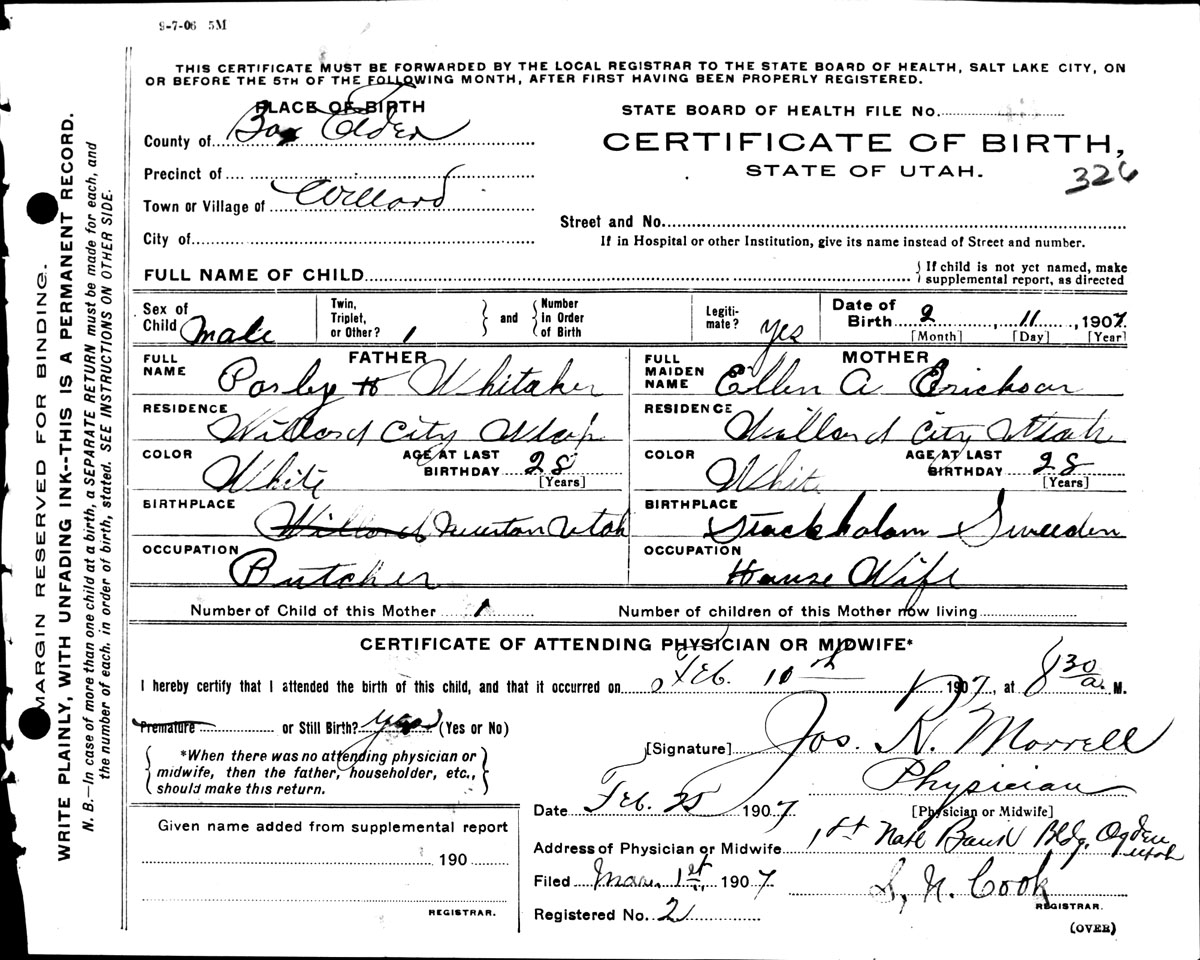 9-7-06 5M
THIS CERTIFICATE MUST BE FORWARDED BY THE LOCAL REGISTRAR TO THE STATE BOARD OF HEALTH, SALT LAKE CITY, ON
OR BEFORE THE 5TH OF THE FOLLOWING MONTH, AFTER FIRST HAVING BEEN PROPERLY REGISTERED.
MARGIN RESERVED FOR BINDING.
WRITE PLAINLY, WITH UNFADING INK--THIS IS A PERMANENT RECORD.
N. B.—In case of more than one child at a birth, a SEPARATE RETURN must be made for each, and
the number of each. in order of birth, stated. SEE INSTRUCTIONS ON OTHER SIDE.
PLACE OF BIRTH
County of Box Elder
Precinct of
Town or Village of Willard
City of
STATE BOARD OF HEALTH FILE No.
CERTIFICATE OF BIRTH,
STATE OF UTAH.
326
Street and No.
If in Hospital or other Institution, give its name instead of Street and number.
FULL NAME OF CHILD
If child is not yet named, make
supplemental report, as directed
Sex of Child Male
Twin, Triplet, or Other? 1
and
Number In Order of Birth
Legiti- mate? yes
Date of Birth 2, 11, 1907.
[Month] [Day] [Year]
FATHER
FULL NAME Whitaker
RESIDENCE Willard City
COLOR White
AGE AT LAST BIRTHDAY 28
[Years]
BIRTHPLACE Willard Utah
OCCUPATION Butcher
MOTHER
FULL MAIDEN NAME Ellen A Erickson
RESIDENCE Willard City Utah
COLOR White
AGE AT LAST BIRTHDAY 28
[Years]
BIRTHPLACE Stockholom Sweeden
OCCUPATION House Wife
Number of Child of this Mother 1
Number of children of this Mother now living
CERTIFICATE OF ATTENDING PHYSICIAN OR MIDWIFE*
I hereby certify that I attended the birth of this child, and that it occurred on Feb. 10th 1907, at 8 30 a. M.
Premature or Still Birth? yes (Yes or No)
*When there was no attending physician or
midwife, then the father, householder, etc.,
should make this return.
[Signature] Jos. R. Morrell
Physician
[Physician or Midwife]
Date Feb. 25 1907
Address of Physician or Midwife 1st Natl Bank Bldg. Ogden Utah
Filed Mar. 1st, 1907
S. N. Cook
REGISTRAR.
Registered No. 2
(OVER)
Given name added from supplemental report
190
REGISTRAR.